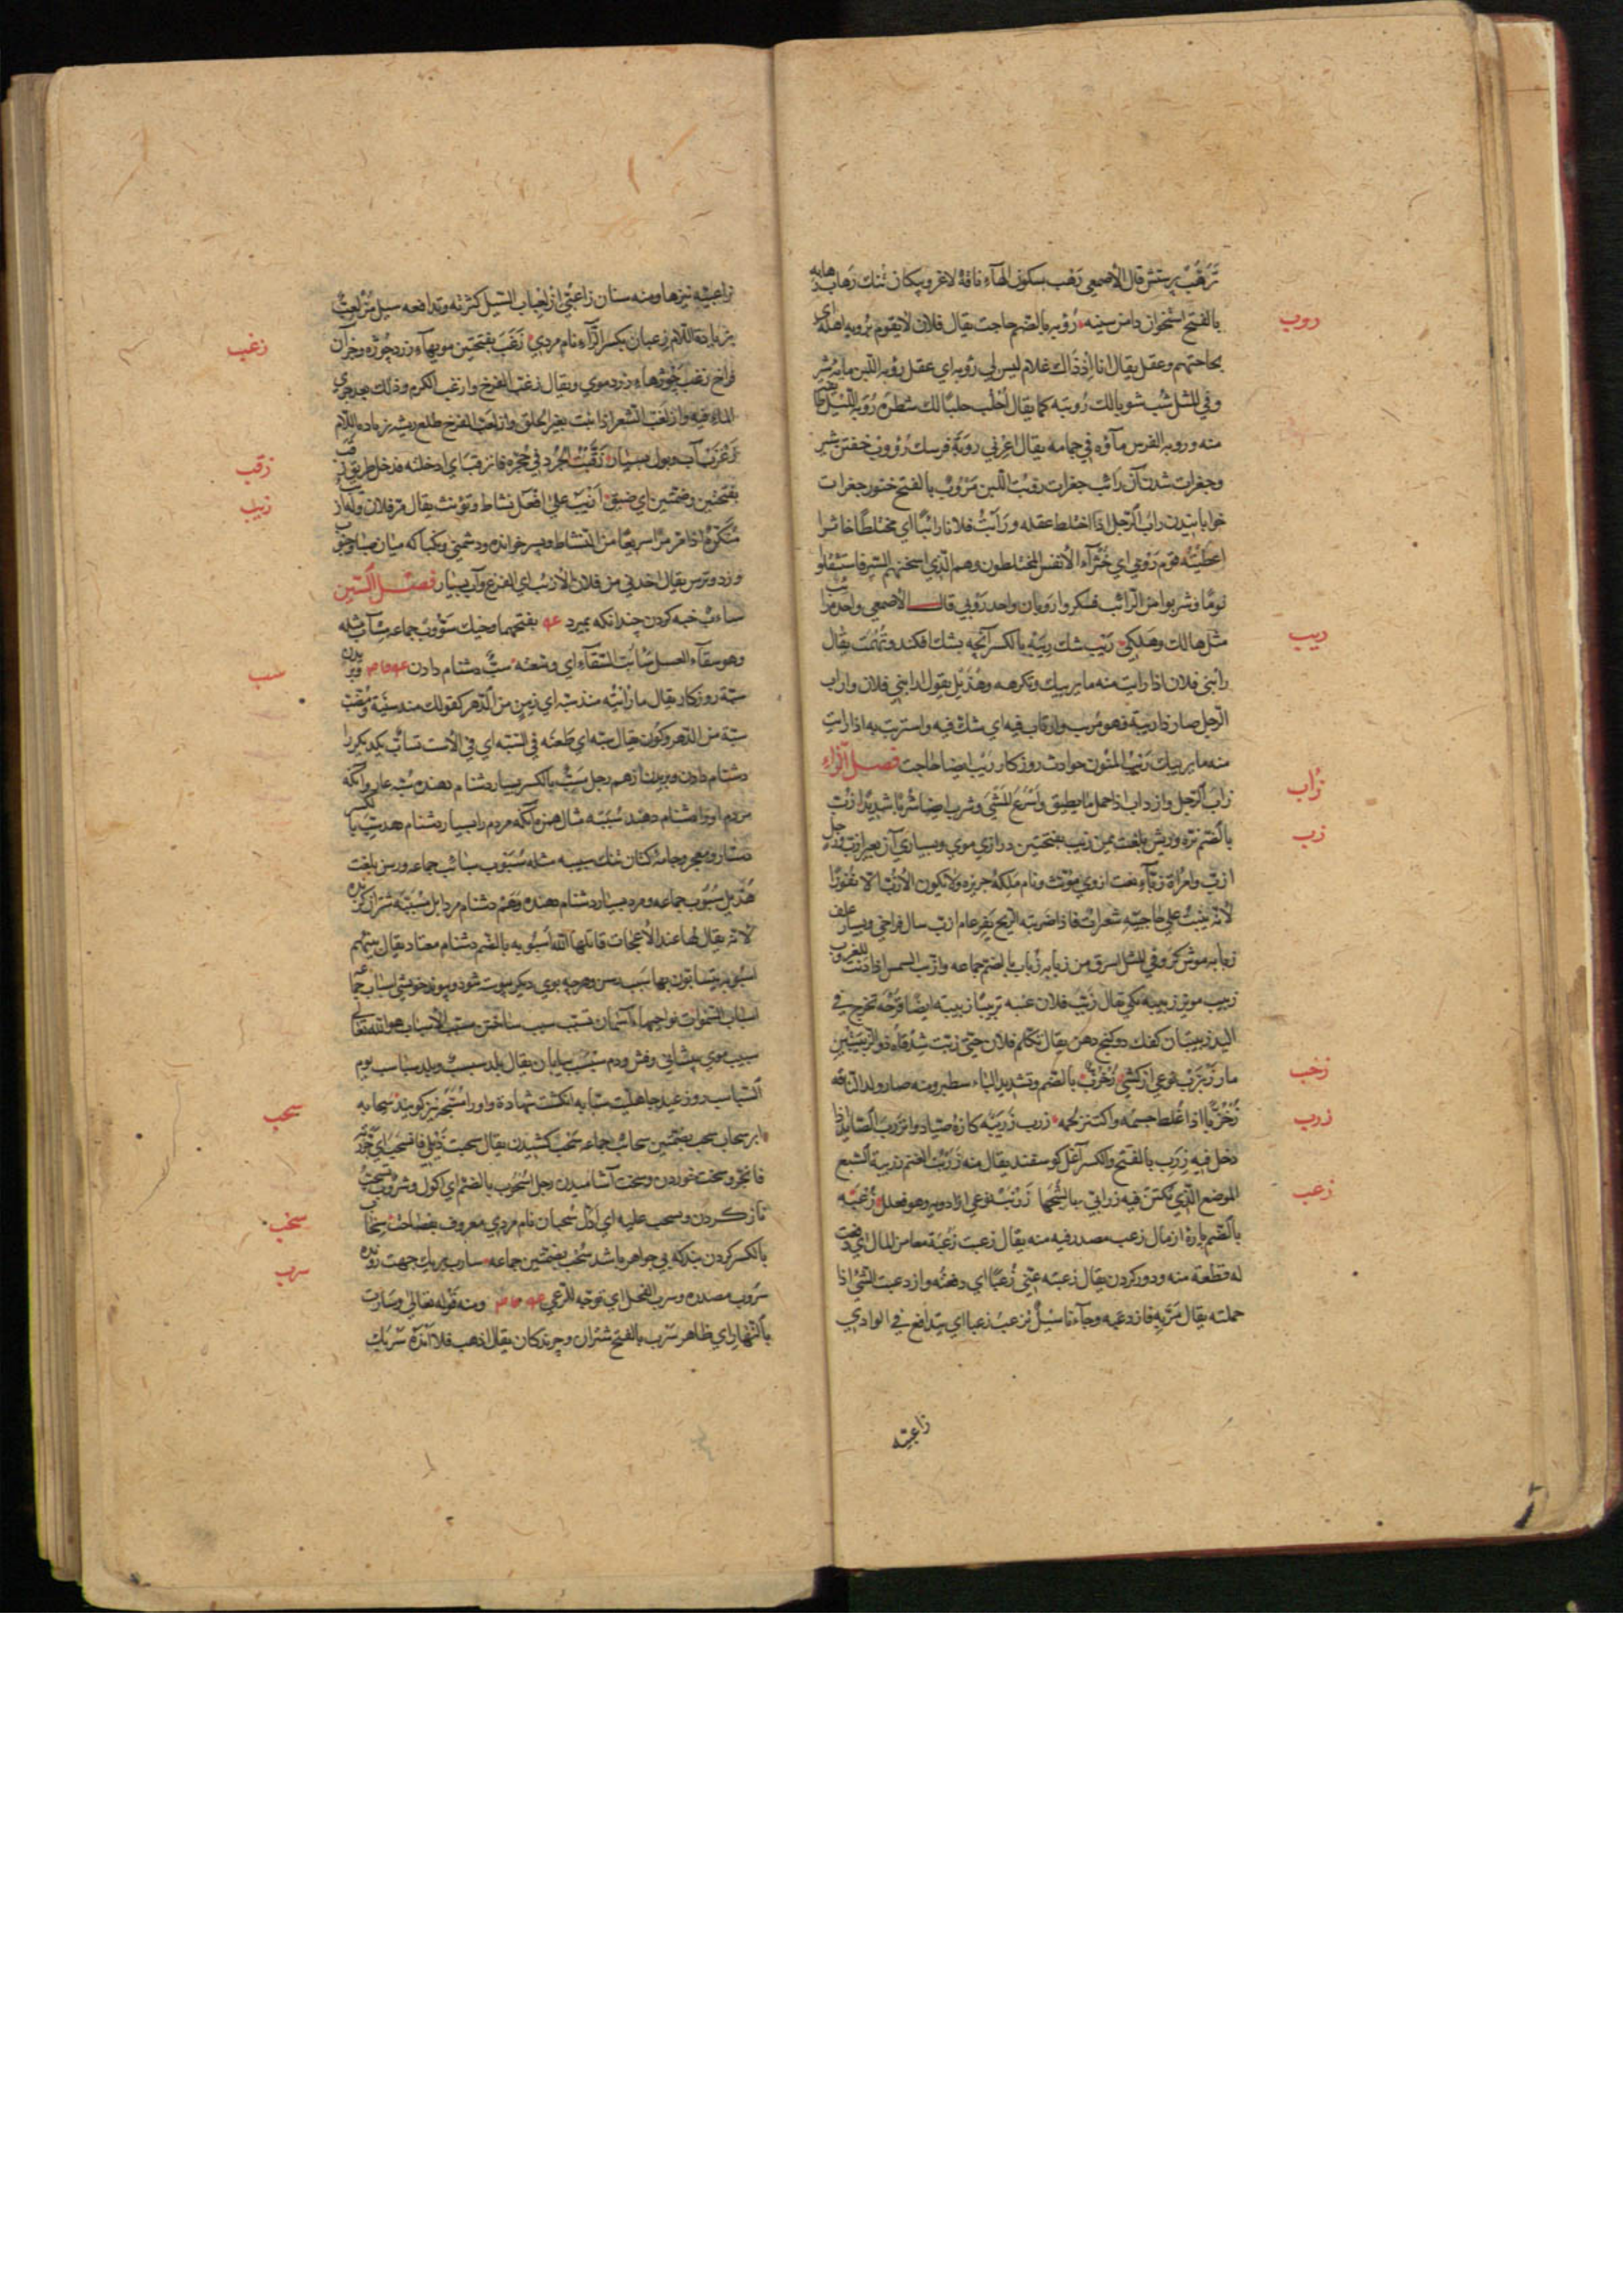 ترهب پرستش قال الأصمعي رهب بسكون الهاء ناقة لاغر و پیکان تنك رهابه
روب
بالفتح استخوان دامن سینه رؤبه بالضم حاجت يقال فلان لا يقوم بروبه اهله اي
بحاجتهم وعقل يقال انا اذ ذاك غلام ليس لي روبه اي عقل روبه اللبن مايه شیر
وفي المثل شب شوبا لك روبته كما يقال احلب حلبا لك شطره روبة الليل
منه وروبه الفرس مآؤه في جمامه يقال اعرني روبة فرسك رؤوب خفتن شير
وجغرات شدن آن رائب جغرات روبت اللبن مروب بالفتح خنور جغرات
خواباییدن راب الرجل اذا اختلط عقله ورأيت فلانا رائبا اي مختلطا خاثرا
قوم روبي اي خثراء الأنفس المختلطون وهم الذي اسخنهم السير فاستثقلوا
نوما وشربوا من الرائب فسكروا روبان واحد روبي قال الأصمعي واحدهم رائب
ريب
مثل هالك وهلكي ريب شك ريبة بالكسر آنچه بشك افكند وتهمت يقال
رابني فلان اذا رايت منه ما يريبك وتكرهه وهذيل يقول ارابني فلان واراب
الرجل صار ذا ريبة فهو مريب وارتاب فيه اي شك فيه واستربت به اذا رايت
منه ما يريبك ريب المنون حوادث روزكار ريب ايضا حاجت فصل الزاء
زأب
زاب الرجل وازداب اذا حمل ما يطيق واسرع المشي وشرب ايضا شربا شديدا
زب
بالضم نره وريش بلغت يمن زبب بفتحتين درازي موي وبسياري آن بعير ازب رجل
ازب وامراة زباء نعت ازوي مؤنث ونام ملكة جزيره ولا يكون الأزب الا نفورا
لأنه ينبت علي حاجبيه شعرات فاذا ضربته الريح نفر عام ازب سال فراخي وبسيار علف
زبابه موش كر وفي المثل اسرق من زبابه زباب بالضم جماعه وازبت الشمس اذا دنت للغروب
زبيب مويز زبيبه يكي يقال زبب فلان عنبه تزبيبا زبيبه ايضا قرحة تخرج في
اليد زبيبتان كفك دو كنج دهن يقال تكلم فلان حتي زبب شدقاه ذو الزبيبتين
زخب
مار زبزب نوعي از كشتي زخزب بالضم وتشديد الباء سطبر ومنه صار ولد الناقة
زرب
زخزبا اذا غلظ جسمه واكتنز لحمه زرب زريبة كازه صياد وانزرب الصائد اذا
دخل فيه زرب بالفتح والكسر آغل كوسفند يقال منه زربت الغنم زريبة السبع
زعب
الموضع الذي يكتن فيه زرابي زرنب نوعي از ادويه وهو فعلل زعبه
بالضم پاره از مال زعب مصدر فيه منه يقال زعبت زعبة من المال اي دفعت
له قطعة منه ودور كردن يقال زعبته عني زعبا اي دفعته وازدعبت الشي اذا
حملته يقال مر به فازدعبه وجاءنا سيل يزعب زعبا اي يتدافع في الوادي
زاعبيه
زاعبيه نيزها ومنه سنان زاعبي ازلعباب السيل كثرته وتدافعه سيل مزلعب
زغب
بزيادة اللام زعبان بكسر الزاء نام مردي زغب بفتحتين مويهاء زرد چوزه وجز آن
فراخ زغب چوزهاء زرد موي ويقال زغب الفرخ وازغب الكرم وذلك بعد جري
الماء فيه وازلغب الشعر اذا نبت بعد الحلق وازلغب الفرخ طلع ريشه بزيادة اللام
زقب
زغرب آب وبول بسيار زقبت الجرذ في جحره فانزقب اي ادخلته فدخل طريق زقب
زيب
بفتحتين وضمتين اي ضيق ازيب علي افعل نشاط وتؤنث يقال مر فلان وله ازيب
منكرة اذا مر مرا سريعا من النشاط وپسر خوانده ودشمني ونكبا كه ميان صبا وجنوب
وزد وترس يقال اخذني من فلان الأزيب اي الفزع وآب بسيار فصل السين
ساب خبه كردن چندانكه بميرد بفتحهما وخيك سؤوب جماعه مساب مثله
سب
وهو سقاء العسل سأبت السقاء اي وسعته سب دشنام دادن وبريدن
سبة روزكار يقال ما رأيته منذ سبة اي زمن من الدهر كقولك منذ سنة ومضت
سبة من الدهر وكون يقال سبه اي طعنه في السبة اي في الأست تساب يكديكر را
دشنام دادن وبريدن از هم رجل سب بالكسر بسيار دشنام دهنده سبه عار وآنكه
مردم او را دشنام دهند سببه مثال همزه آنكه مردم را بسيار دشنام دهد سب بالكسر
دستار ومعجر وجامه كتان تنك سبيبه مثله سبوب سبائب جماعه ورسن بلغت
هذيل سبوب جماعه ومرد بسيار دشنام دهنده وهم دشنام مرد ابل مسببة شتران كزيده
لأنه يقال لها عند الأعجاب قاتلها الله اسبوبه بالضم دشنام معتاد يقال بينهم
اسبوبه يتسابون بها سبب رسن وهرچه بوي ديكر پيوسته شود وپيوند خويشي اسباب جماعه
اسباب السموات نواحيها آسمان تسبب سبب ساختن مسبب الأسباب هو الله تعالي
سبيب موي پيشاني وفش ودم سبسب بيابان يقال بلد سبسب وبلد سباسب يوم
السباسب روز عيد جاهليت سبابه انكشت شهادة واو را مسبحه نيز كويند
سحب
سحابه ابر سحاب سحب بضمتين سحائب جماعه سحب كشيدن يقال سحبت ذيلي فانسحب اي جررته
فانجر وسخت خوردن وسخت آشاميدن رجل اسحوب بالضم اي اكول وشروب تسحب
سخب
ناز كردن وتسحب عليه اي ادل سحبان نام مردي معروف بفصاحت سخاب
سرب
بالكسر كردن بند كه بي جواهر باشد سخب بضمتين جماعه سارب بهر يك جهت رونده
سروب مصدره وسرب الفحل اي توجه للرعي ومنه قوله تعالي وسارب
بالنهار اي ظاهر سرب بالفتح شتران وچرندكان يقال اذهب فلا انده سربك